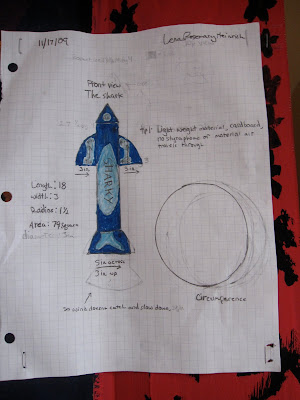 11/17/09
Lena Rosemary Heinrich
Front view
The shark
tip: Light weight material, cardboard,
no styraphome or material air
travels through
SHARKY
3in.
3in.
Length: 18
Width: 3
Radius: 1½
Area: 79 square
diameter: 3in
5in across
3in up
so wind doesnt catch and slow down
Circumference